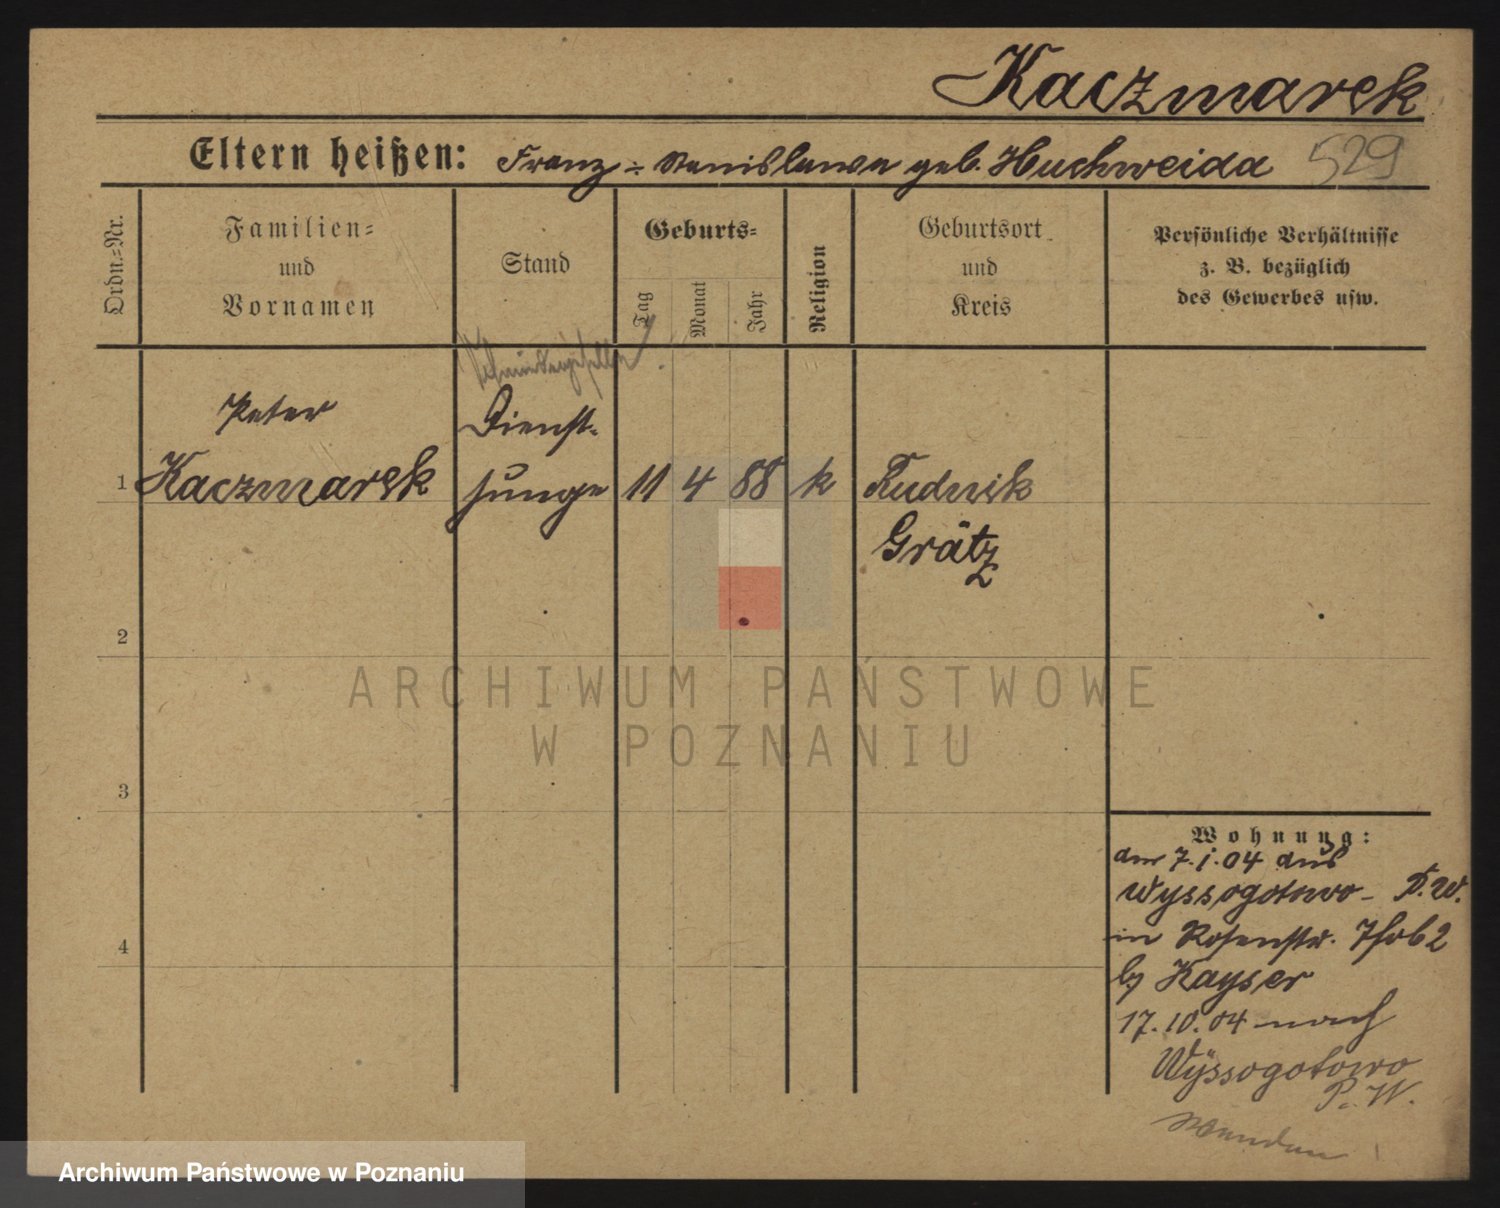 Kaczmarek
Eltern heißen: Franz ÷ Stanislawa geb. Huchweida 529
Ordn.=Nr.
Familien=
und
Vornamen
Stand
Geburts=
Tag
Monat
Jahr
Religion
Geburtsort
und
Kreis
Persönliche Verhältnisse
z. B. bezüglich
des Gewerbes usw.
Peter Dienst-
1 Kaczmarek junge 11 4 88 k Rudnik
Grätz
2
3
4
Wohnung:
den 7.1.04 aus
Wyssogotowo - P.W.
in Rosenstr.
by Kayser
17.10.04 nach
Wÿssogotowo
P. W.
wenden
ARCHIWUM PAŃSTWOWE
W POZNANIU
Archiwum Państwowe w Poznaniu